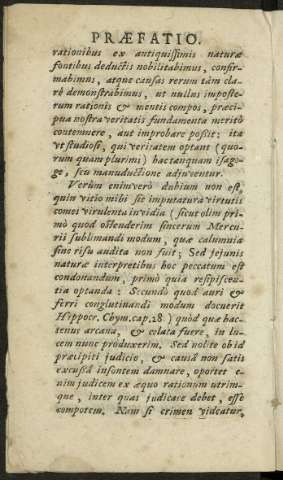 PRÆFATIO.
rationibus ex antiquissimis naturæ
fontibus deductis nobilitabimus, confir-
mabimus, atque causas rerum tàm cla-
rè demonstrabimus, ut nullus imposte-
rum rationis & mentis compos, præci-
pua nostra veritatis fundamenta meritò
contemnere, aut improbare possit: ita
vt studiosi, qui veritatem optant (quo-
rum quam plurimi) hac tanquam isago-
ge, seu manuductione adjuventur.
Verùm enimverò dubium non est,
quin vitio mihi sit imputatura virtutis
comes virulenta invidia (sicut olim pri-
mò quod ostenderim sincerum Mercu-
rii sublimandi modum, quæ calumnia
sine risu audita non fuit; Sed jejunis
naturæ interpretibus hoc peccatum est
condonandum, primò quia resipiscen-
tia optanda: Secundò quod auri &
ferri conglutinandi modum docuerit
Hippocr. Chym. cap. 28.) quòd quæ hac-
tenus arcana, & celata fuere, in lu-
cem nunc produxerim. Sed nolite ob id
præcipiti judicio, & causâ non satis
excussâ insontem damnare, oportet e-
nim judicem ex æquo rationum utrim-
que, inter quas judicare debet, esse
compotem. Nam si crimen videatur,